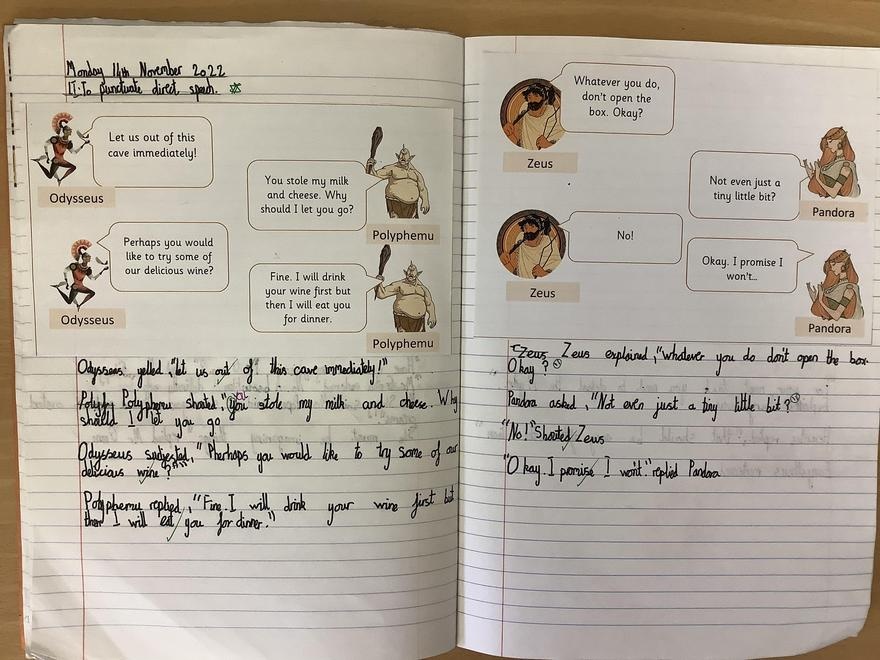 Monday 14th November 2022
LI: To punctuate direct speach.
Let us out of this
cave immediately!
Odysseus
You stole my milk
and cheese. Why
should I let you go?
Polyphemu
Perhaps you would
like to try some of
our delicious wine?
Odysseus
Fine. I will drink
your wine first but
then I will eat you
for dinner.
Polyphemu
Odysseus yelled "let us out of this cave immediately!"
Polyphemu shouted, "You stole my milk and cheese. Why
should I let you go
Odysseus sudjested, "Pherhaps you would like to try some of our
delicious wine?"
Polyphemu replied, "Fine. I will drink your wine first but
then I will eat you for dinner."
Whatever you do,
don't open the
box. Okay?
Zeus
Not even just a
tiny little bit?
Pandora
No!
Zeus
Okay. I promise I
won't...
Pandora
Zeus Zeus explained, "whatever you do don't open the box.
Okay?
Pandora asked, "Not even just a tiny little bit?
"No!" Shouted Zeus
"Okay. I promise I won't." replied Pandora